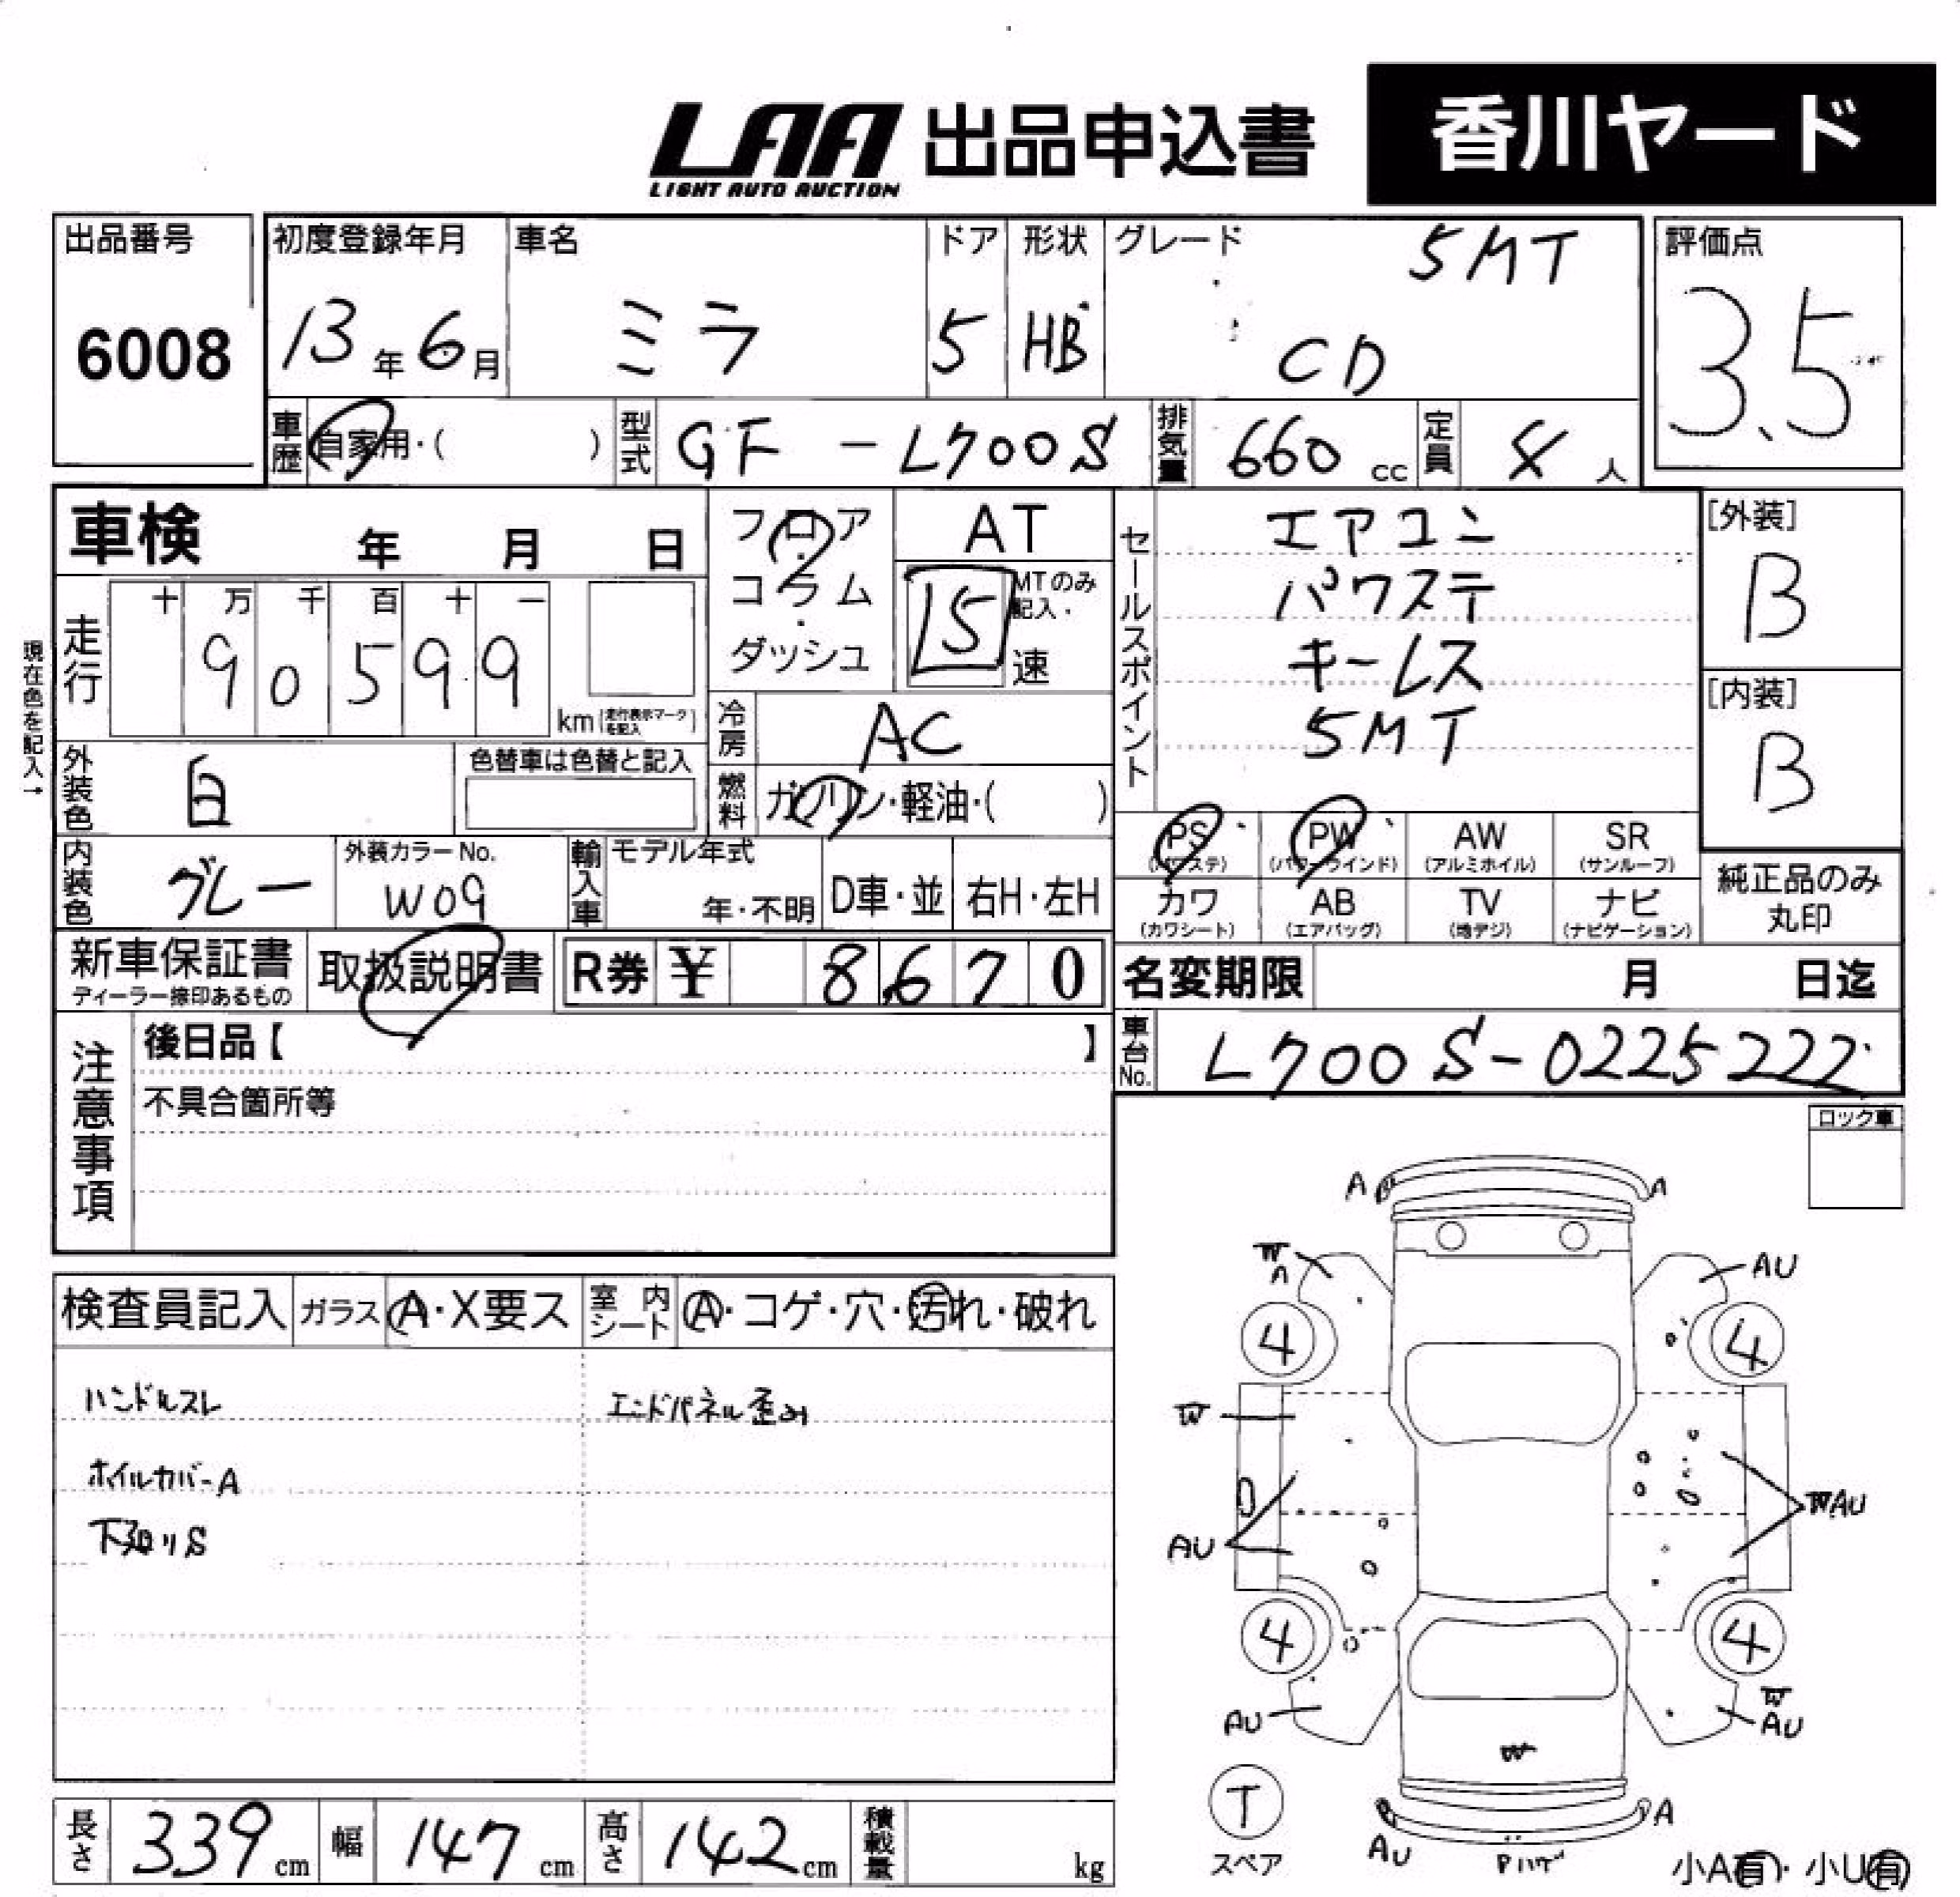 LAA 出品申込書 香川ヤード
LIGHT AUTO AUCTION
出品番号
6008
初度登録年月
13年6月
車名
ミラ
ドア
5
形状
HB
グレード
5MT
CD
評価点
3.5
車歴 自家用・( )
型式 GF-L700S
排気量 660cc
定員 4人
車検 年 月 日
フロア
コラム
ダッシュ
AT
5
MTのみ記入
速
現在色を記入→
走行
十 万 千 百 十 一
9 0 5 9 9
km(走行表示マークを記入)
冷房 AC
外装色 白
色替車は色替と記入
燃料 ガソリン・軽油・( )
内装色 グレー
外装カラーNo.
W09
輸入車
モデル年式
年・不明
D車・並
右H・左H
セールスポイント
エアコン
パワステ
キーレス
5MT
[外装]
B
[内装]
B
PS (パワステ)
PW (パワーウインド)
AW (アルミホイル)
SR (サンルーフ)
カワ (カワシート)
AB (エアバッグ)
TV (地デジ)
ナビ (ナビゲーション)
純正品のみ
丸印
新車保証書
ディーラー捺印あるもの
取扱説明書
R券 ¥ 8,670
名変期限 月 日迄
車台No. L700S-0225222
注意事項
後日品【 】
不具合箇所等
ロック車
検査員記入
ガラス A・X要ス
室内シート A・コゲ・穴・汚れ・破れ
ハンドルスレ
エンドパネル歪み
ホイルカバーA
下廻りS
A A
W
A
AU
4 4
W
AU
WAU
4 4
AU
W
AU
W
T
スペア
AU
A
Pハゲ
小A有・小U有
長さ 339cm
幅 147cm
高さ 142cm
積載量 kg